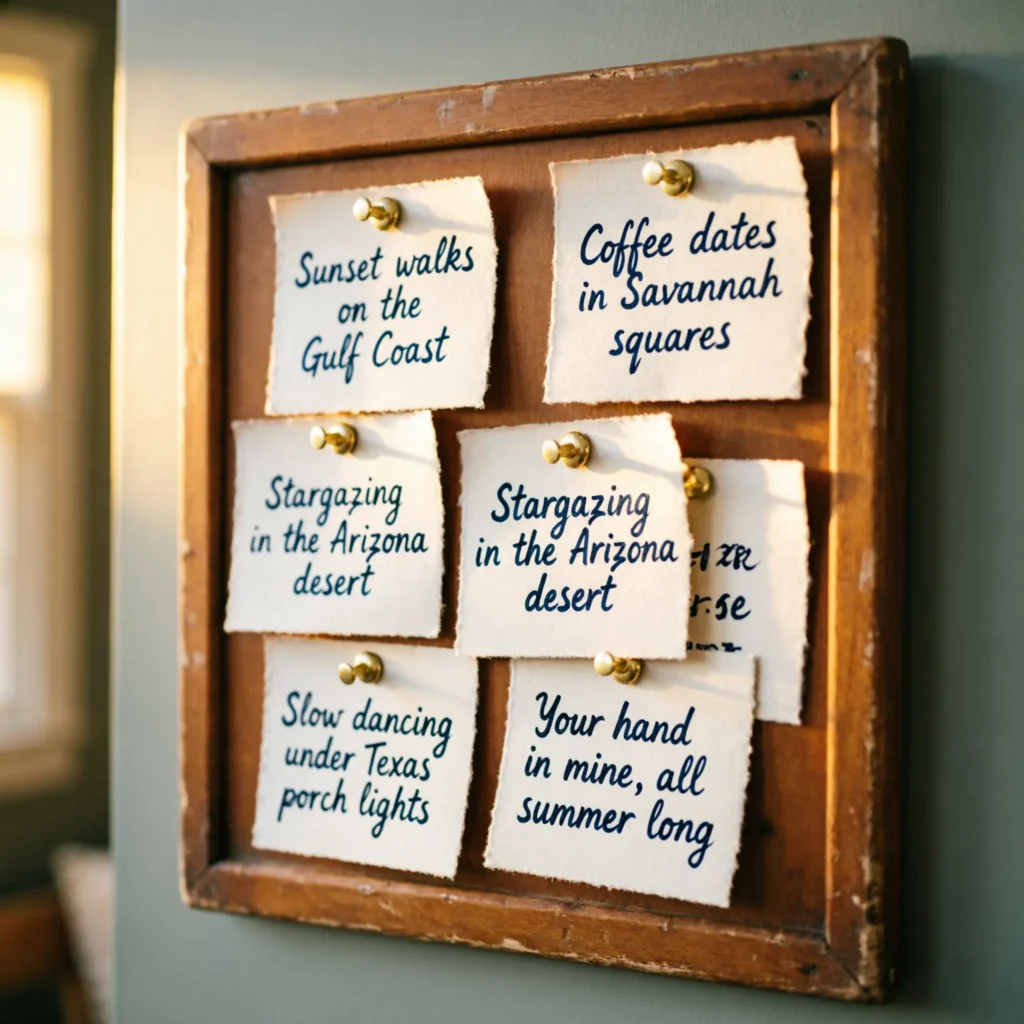 Sunset walks
on the
Gulf Coast
Coffee dates
in Savannah
squares
Stargazing
in the Arizona
desert
Stargazing
in the Arizona
desert
Slow dancing
under Texas
porch lights
Your hand
in mine, all
summer long